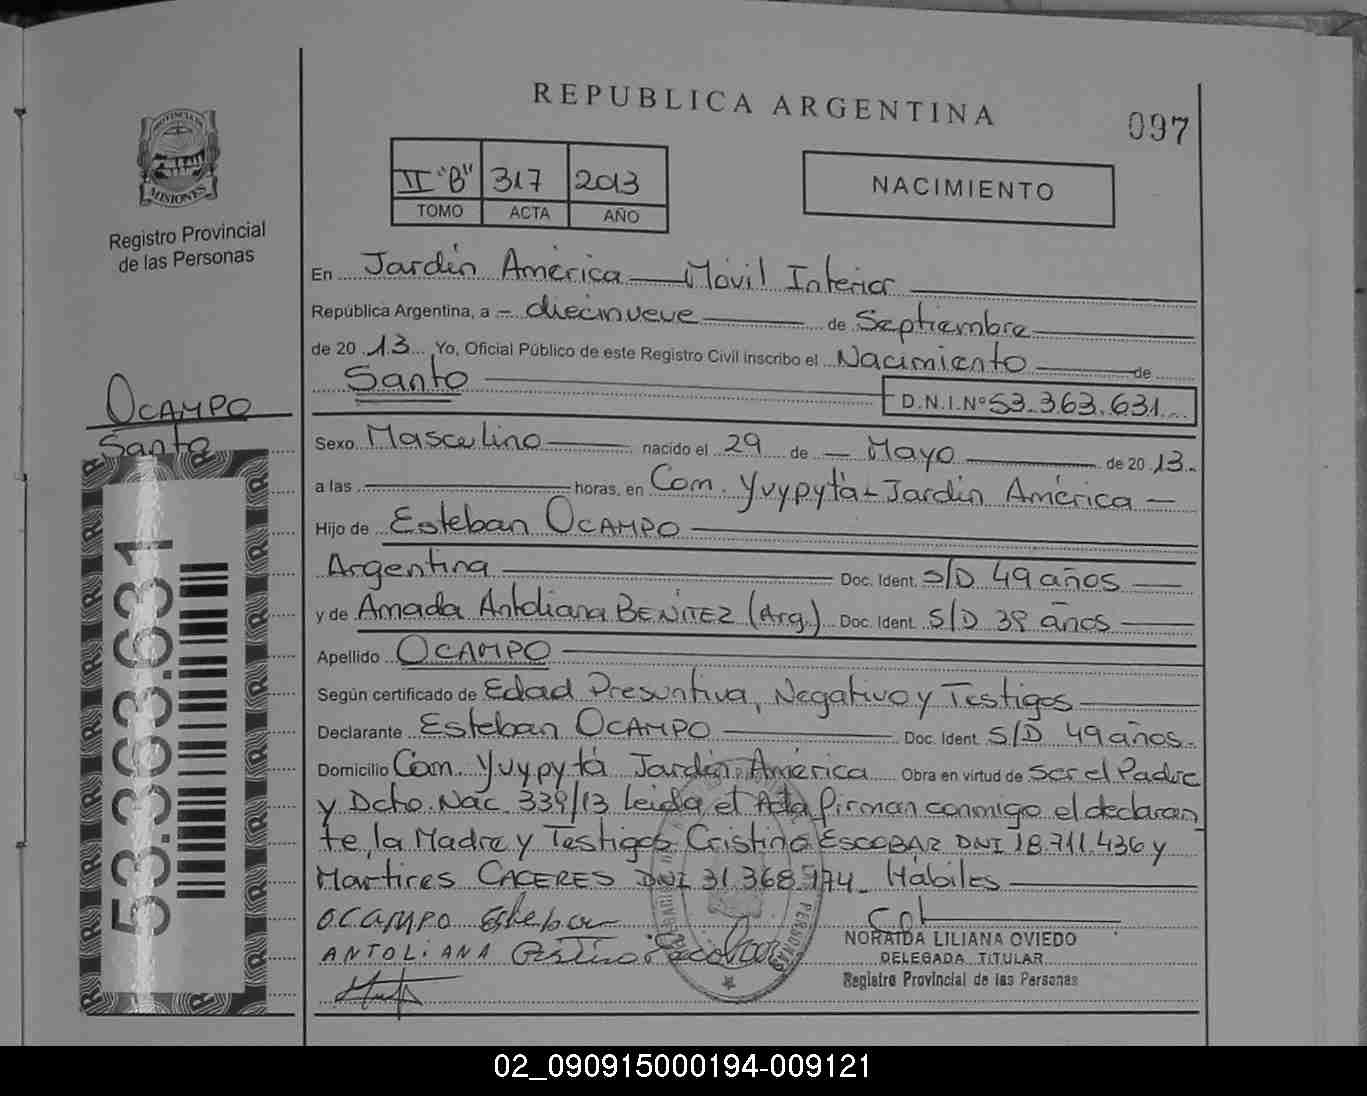 REPUBLICA ARGENTINA
097
PROVINCIA DE MISIONES
Registro Provincial
de las Personas
II "B" 317 2013
TOMO ACTA AÑO
NACIMIENTO
En Jardín América Móvil Interior
República Argentina, a diecinueve de Septiembre
de 20 13 Yo, Oficial Público de este Registro Civil inscribo el Nacimiento de
Santo
D.N.I.Nº 53.363.631
OCAMPO
Santo
Sexo Masculino nacido el 29 de Mayo de 20 13
a las horas, en Com. Yvypytá - Jardín América
Hijo de Esteban OCAMPO
Argentina Doc. Ident. S/D 49 años
y de Amada Antoliana BENITEZ (Arg.) Doc. Ident. S/D 38 años
Apellido OCAMPO
Según certificado de Edad Presuntiva, Negativo y Testigos
Declarante Esteban OCAMPO Doc. Ident. S/D 49 años
Domicilio Com. Yvypytá Jardín América Obra en virtud de ser el Padre
y Dcho. Nac. 339/13 leida el Acta firman conmigo el declaran
te, la Madre y Testigos Cristina ESCOBAR DNI 18.711.436 y
Martires CACERES DNI 31.368.974 Hábiles
OCAMPO Esteban
ANTOLIANA Cristina Escobar
NORAIDA LILIANA OVIEDO
DELEGADA TITULAR
Registro Provincial de las Personas
53.363.631
02_090915000194-009121